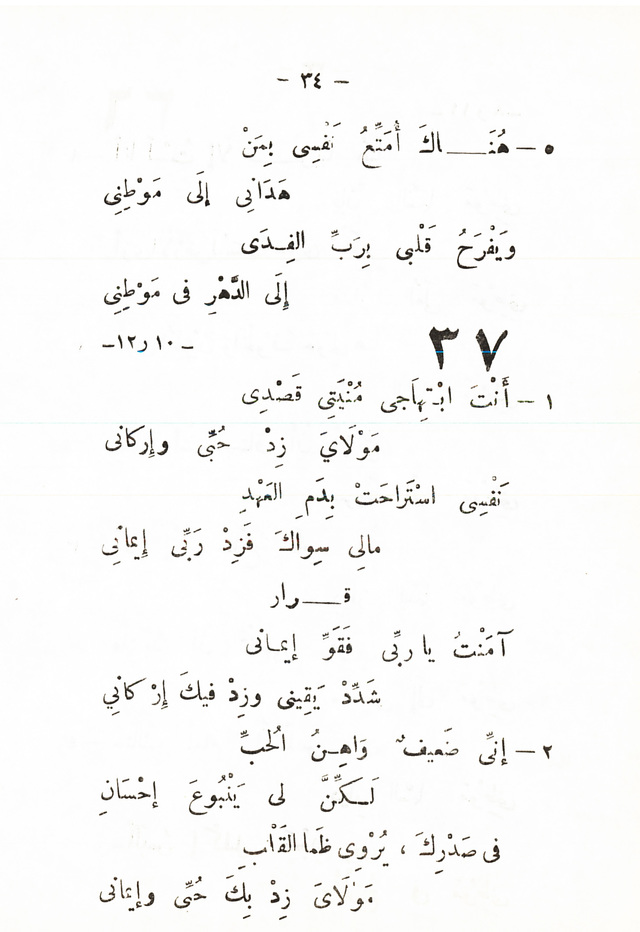 – ٣٤ –
٥ – هُنَـــاكَ أُمَتِّعُ نَفْسِى بِمَنْ
هَدَانِى إِلَى مَوْطِنِى
وَيَفْرَحُ قَلْبِى بِرَبِّ الفِـدَى
إِلَى الدَّهْرِ فى مَوْطِنِى
٣٧
– ١٠ ر١٢ –
١ – أَنْتَ ابْتِهَاجى مُنْيَتِى قَصْدِى
مَوْلَايَ زِدْ حُبِّى وإِركانى
نَفْسِى اسْتَراحَتْ بِدَمِ العَهْدِ
مالِى سِواكَ فَزِدْ رَبِّى إِيمانِى
قـــرار
آمَنْتُ يا ربِّى فَقَوِّ إيمـانى
شَدِّدْ يَقِينى وزِدْ فيكَ إِرْكانِي
٢ – إنِّى ضَعيفٌ وَاهِـنُ الُحبِّ
لَـكِنَّ لى يَنْبُوعَ إحْسَانِ
فى صَدْرِكَ ، يُرْوِى ظَما القَلْبِ
مَوْلَاىَ زِدْ بِكَ حُبِّى وإِيمانى